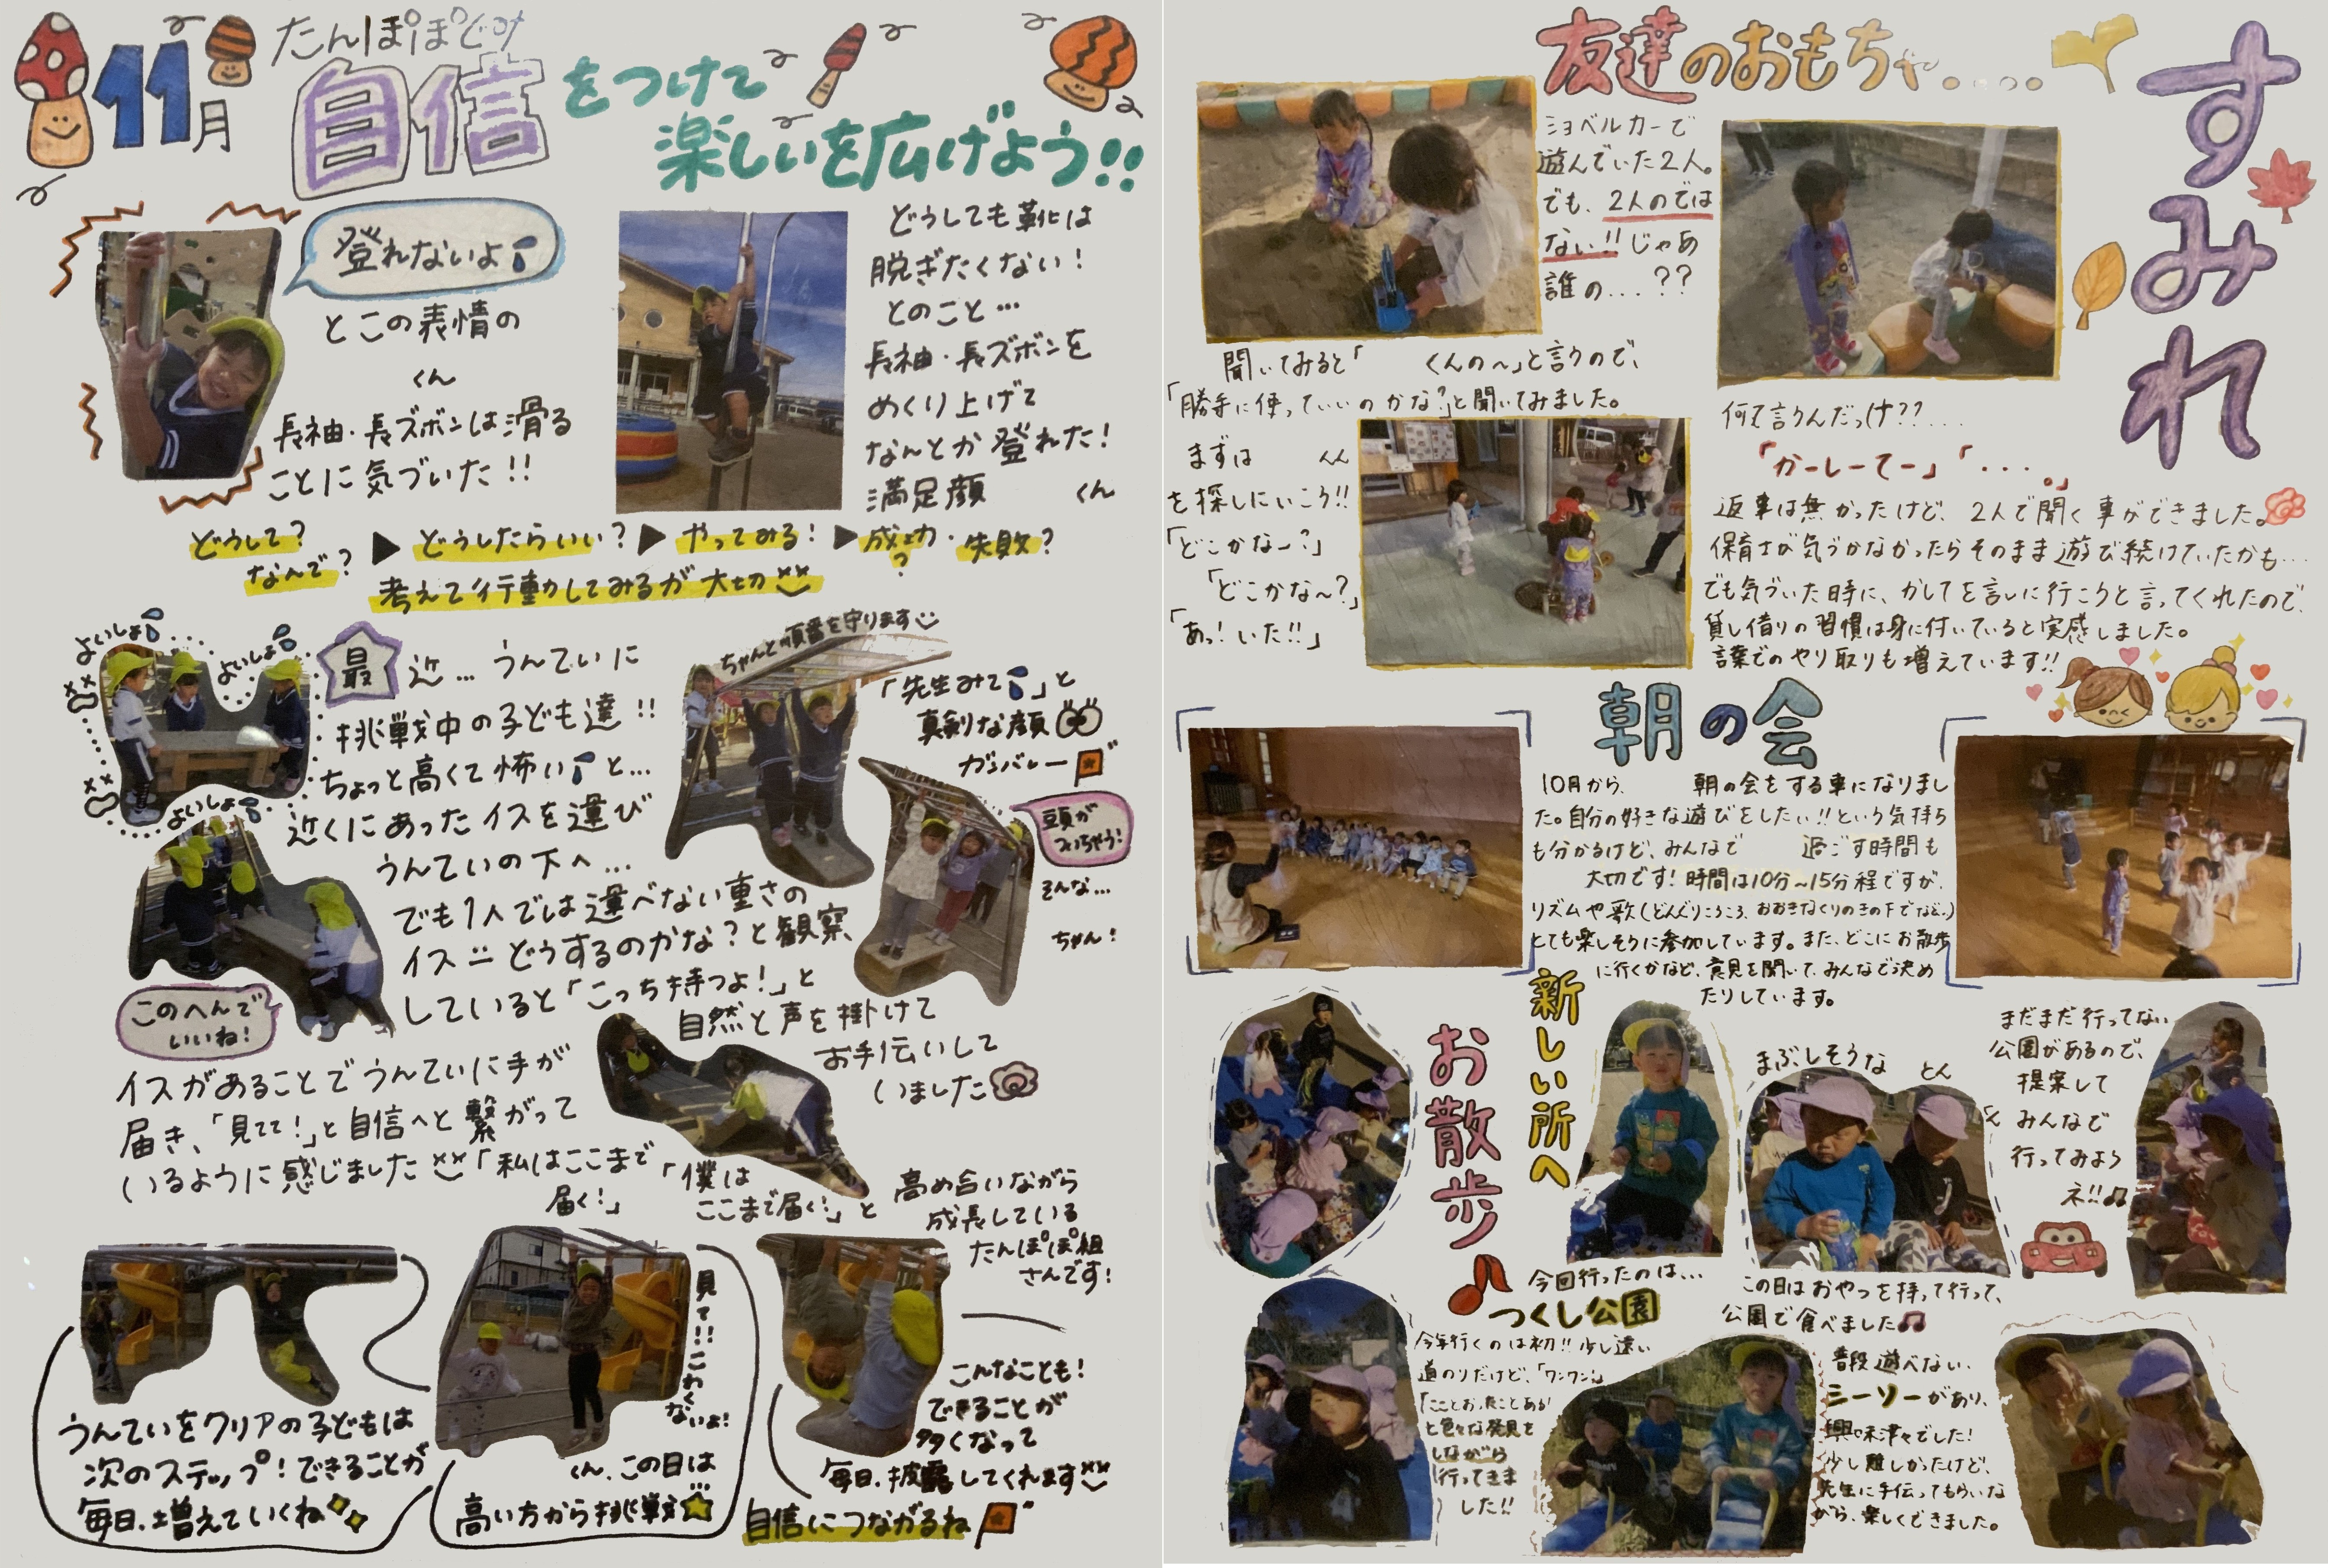 11月
たんぽぽぐみ
自信をつけて
楽しいを広げよう!!
登れないよ
とこの表情の
くん
長袖・長ズボンは滑る
ことに気づいた!!
どうしても靴は
脱ぎたくない!
とのこと…
長袖・長ズボンを
めくり上げて
なんとか登れた!
満足顔 くん
どうして?
なんで?
▶どうしたらいい?▶やってみる!▶成功・失敗?
?
考えて行動してみるが大切
よいしょ
よいしょ
よいしょ
最近…うんていに
挑戦中の子ども達!!
ちょっと高くて怖いと…
近くにあったイスを運び
うんていの下へ…
でも1人では運べない重さの
イス=どうするのかな?と観察
していると「こっち持つよ!」と
自然と声を掛けて
お手伝いして
いました
このへんで
いいね!
ちゃんと順番を守ります
「先生みて」と
真剣な顔
ガンバレー
頭が
ついちゃう!
そんな…
ちゃん!
イスがあることでうんていに手が
届き、「見てて!」と自信へと繋がって
いるように感じました「私はここまで
届く!」
「僕は
ここまで届く!」と
高め合いながら
成長している
たんぽぽ組
さんです!
うんていをクリアの子どもは
次のステップ!できることが
毎日、増えていくね
見て!!こわくないよ!
くん、この日は
高い方から挑戦
こんなことも!
できることが
多くなって
毎日、披露してくれます
自信につながるね
すみれ
友達のおもちゃ.....
ショベルカーで
遊んでいた2人。
でも、2人のでは
ない!!じゃあ
誰の...??
聞いてみると「 くんの〜」と言うので、
「勝手に使っていいのかな?」と聞いてみました。
まずは くん
を探しにいこう!!
「どこかなー?」
「どこかな〜?」
「あっ!いた!!」
何て言うんだっけ??....
「かーしーてー」「・・・。」
返事は無かったけど、2人で聞く事ができました。
保育士が気づかなかったらそのまま遊び続けていたかも…
でも気づいた時に、かしてを言いに行こうと言ってくれたので、
貸し借りの習慣は身に付いていると実感しました。
言葉でのやり取りも増えています!!
朝の会
10月から、 朝の会をする事になりまし
た。自分の好きな遊びをしたい!!という気持ち
も分かるけど、みんなで 過ごす時間も
大切です!時間は10分〜15分程ですが、
リズムや歌(どんぐりころころ、おおきなくりのきの下でなど。)
とても楽しそうに参加しています。また、どこにお散歩
に行くかなど、意見を聞いて、みんなで決め
たりしています。
新しい所へ
お散歩
まぶしそうな とん
まだまだ行ってない
公園があるので、
提案して
みんなで
行ってみよう
ネ!!
今回行ったのは…
つくし公園
今年行くのは初!!少し遠い
道のりだけど、「ワンワン!」
「こことおったことある!
と色々な発見を
しながら
行ってきま
した!!
この日はおやつを持って行って、
公園で食べました
普段遊べない、
シーソーがあり、
興味津々でした!
少し難しかったけど、
先生に手伝ってもらいな
がら、楽しくできました。